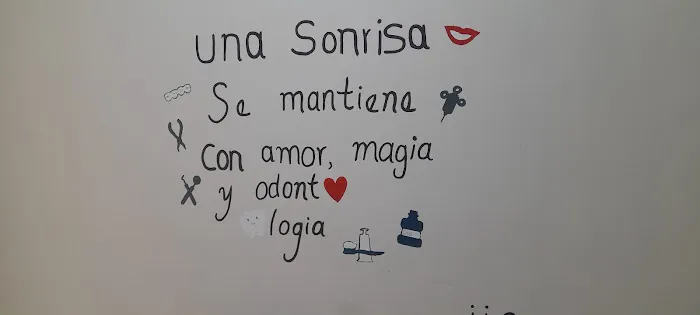 una Sonrisa
Se mantiene
con amor, magia
y odont
logia